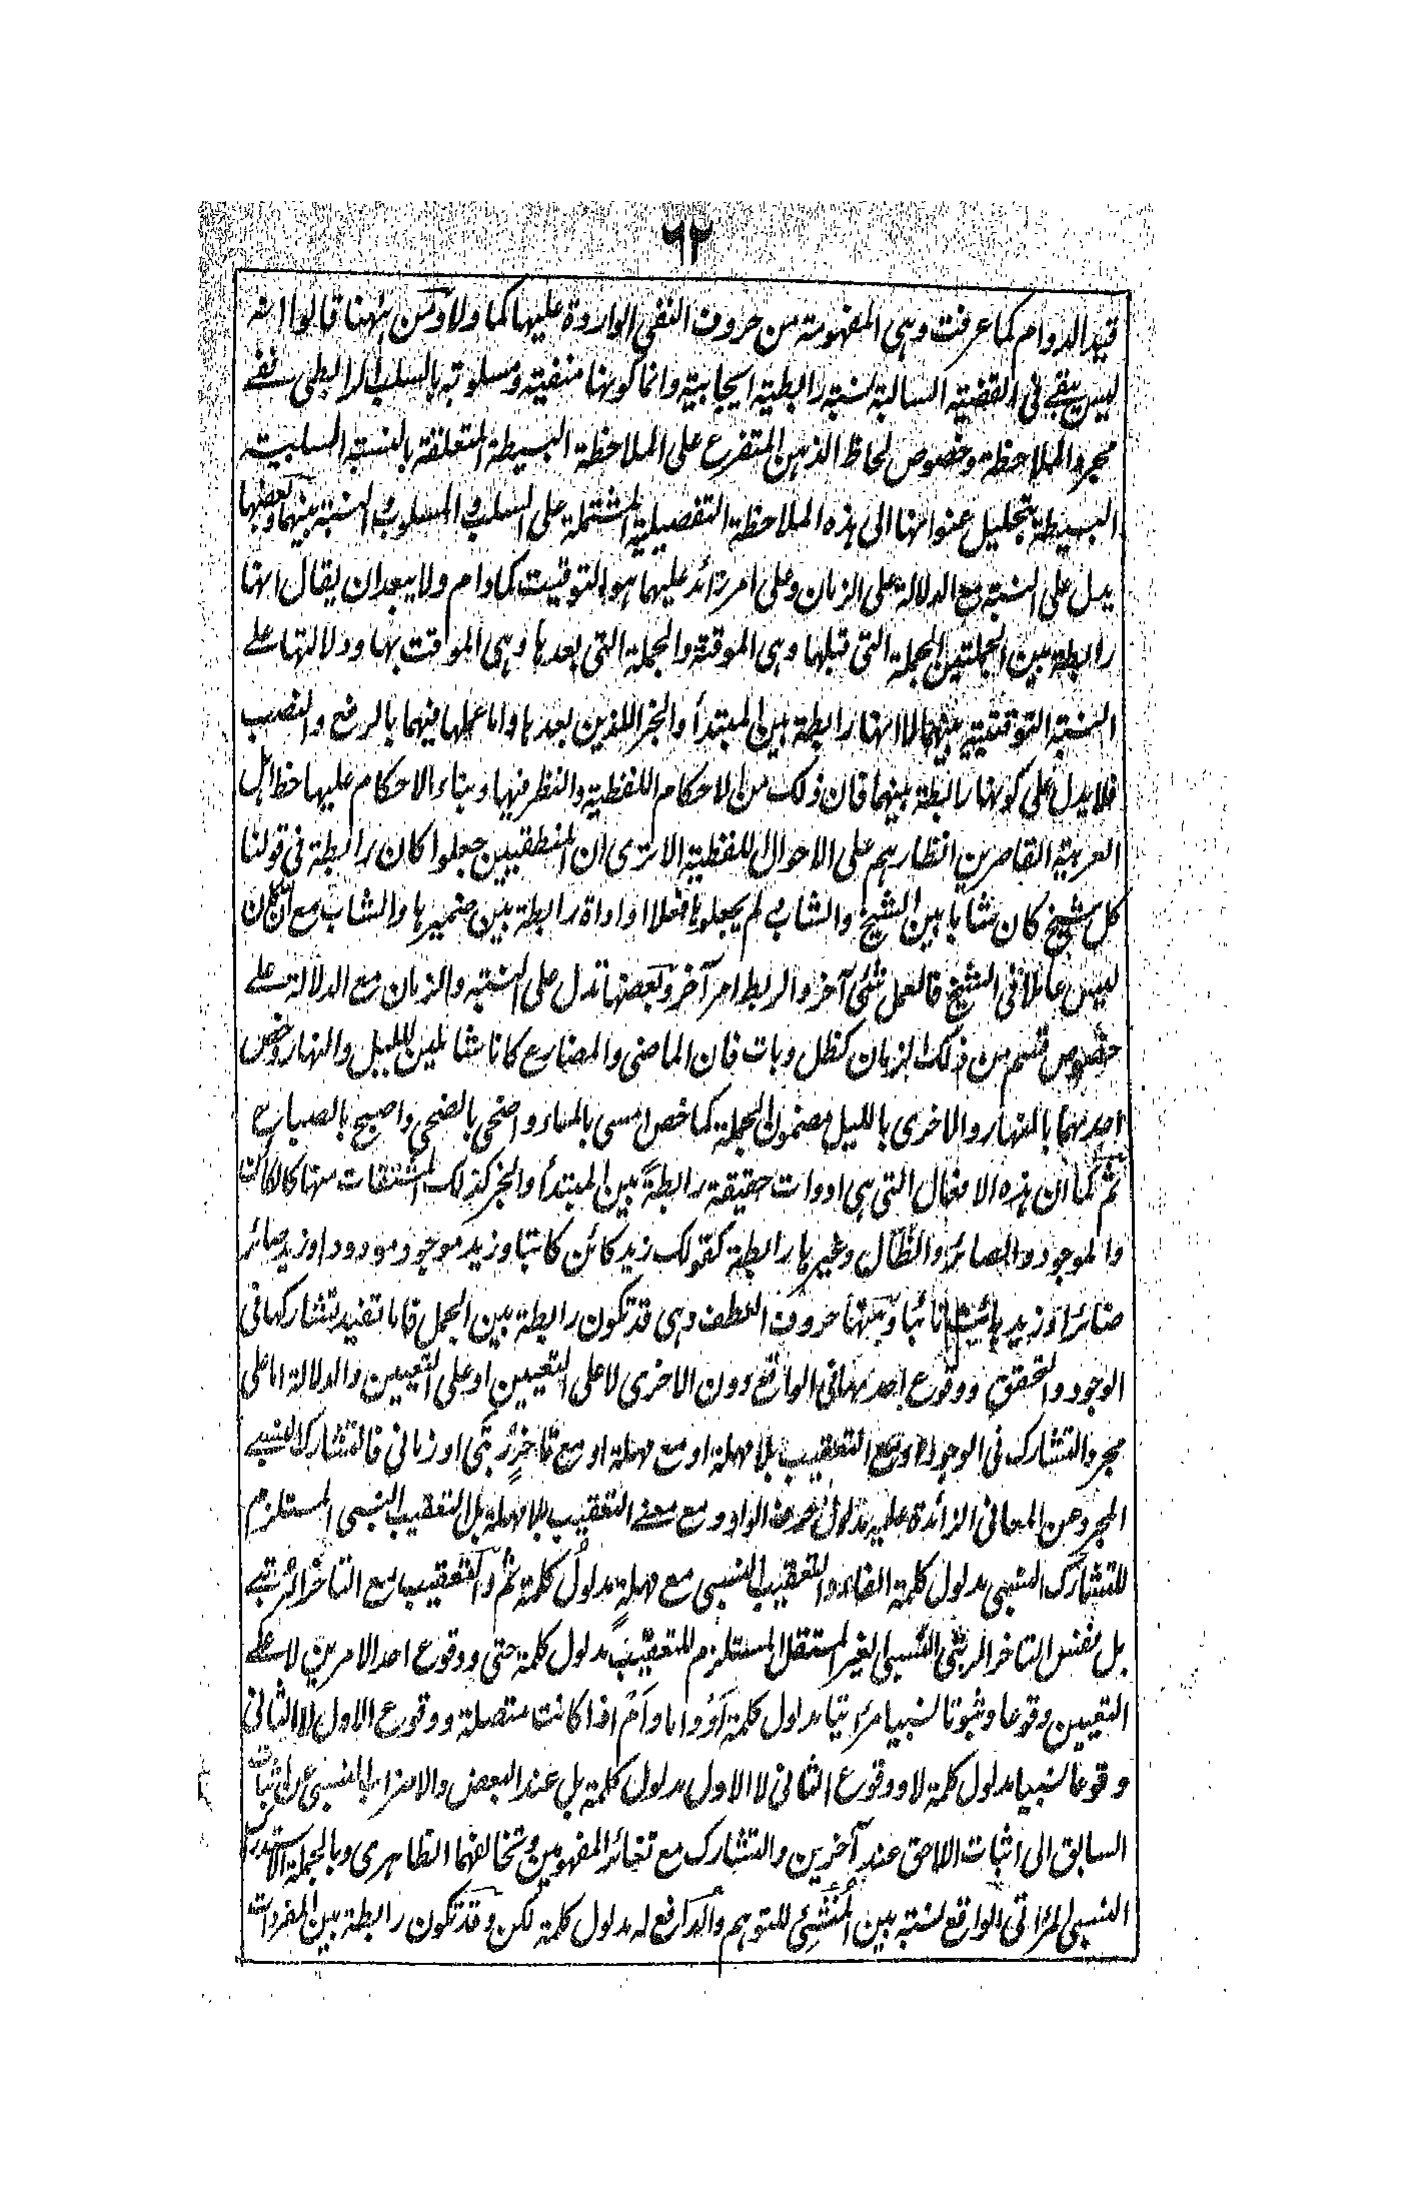 ٦٢
قيد الدوام كما عرفت وهى المفهومة من حروف النفى الواردة عليها كما ولا ومن ههنا قالوا انه
ليس يبقى فى القضية السالبة نسبة رابطية ايجابية وانما كونها منفية ومسلوبة بالسلب الرابطى فى
مجرد الملاحظة وخصوص لحاظ الذهن المتفرع على الملاحظة البسيطة المتعلقة بالنسبة السلبية
البسيطة بتحليل عنوانها الى هذه الملاحظة التفصيلية المشتملة على السلب والمسلوب والنسبة بينهما وبعضها
يدل على النسبة مع الدلالة على الزمان وعلى امر زائد عليهما هو التوقيت كما دام ولا يبعد ان يقال انها
رابطة بين الجملتين الجملة التى قبلها وهى الموقتة والجملة التى بعدها وهى الموقت بها ودلالتها على
النسبة التوقيتية بينهما لا انها رابطة بين المبتدأ والخبر اللذين بعدها واما عملها فيهما بالرفع والنصب
فلا يدل على كونها رابطة بينهما فان ذلك من الاحكام اللفظية والنظر فيها وبناء الاحكام عليها حظ اهل
العربية القاصرين انظارهم على الاحوال اللفظية الا ترى ان المنطقيين جعلوا كان رابطة فى قولنا
كل شيخ كان شابا بين الشيخ والشاب لم يجعلوها فعلا او اداة رابطة بين ضميرها والشاب مع ان كان
ليس عاملا فى الشيخ فالعمل شئ آخر والربط امر آخر وبعضها تدل على النسبة والزمان مع الدلالة على
خصوص قسم من ذلك الزمان كظل وبات فان الماضى والمضارع كانا شاملين لليل والنهار وخص
احدهما بالنهار والاخرى بالليل مضمون الجملة كما خص امسى بالمساء واضحى بالضحى واصبح بالصباح
ثم كما ان هذه الافعال التى هى ادوات حقيقة رابطة بين المبتدأ والخبر كذلك المشتقات منها كالكائن
والموجود والصائر والظال وغيرها رابطة كقولك زيد كائن كاتبا وزيد موجود مودودا وزيد صائر
ضائرا وزيد بائت نائبا ومنها حروف العطف وهى قد تكون رابطة بين الجمل فاما تفيد تشاركها فى
الوجود والتحقق ووقوع احدهما فى الواقع دون الاخرى لا على التعيين او على التعيين والدلالة اما على
مجرد التشارك فى الوجود او مع التعقيب بلا مهلة او مع مهلة او مع تاخر رتبى او زمانى فالتشارك النسبى
المجرد عن المعانى الزائدة عليه مدلول حرف الواو ومع معنى التعقيب بلا مهلة بل التعقيب النسبى المستلزم
للتشارك النسبى مدلول كلمة الفاء والتعقيب النسبى مع مهلة مدلول كلمة ثم والتعقيب مع التاخر الرتبى
بل نفس التاخر الرتبى النسبى الغير المستقل المستلزم للتعقيب مدلول كلمة حتى ووقوع احد الامرين لا على
التعيين وقوعا وثبوتا نسبيا مرآتيا مدلول كلمة او واما وام اذا كانت متصلة ووقوع الاول لا الثانى
وقوعا نسبيا مدلول كلمة لا ووقوع الثانى لا الاول مدلول كلمة بل عند البعض والاضراب النسبى عن اثبات
السابق الى اثبات اللاحق عند آخرين والتشارك مع تغائر المفهومين وتخالفهما الظاهرى وبالجملة الاستدراك
النسبى المرآتى الواقع نسبة بين المنشئ للتوهم والدافع له مدلول كلمة لكن وقد تكون رابطة بين المفردات